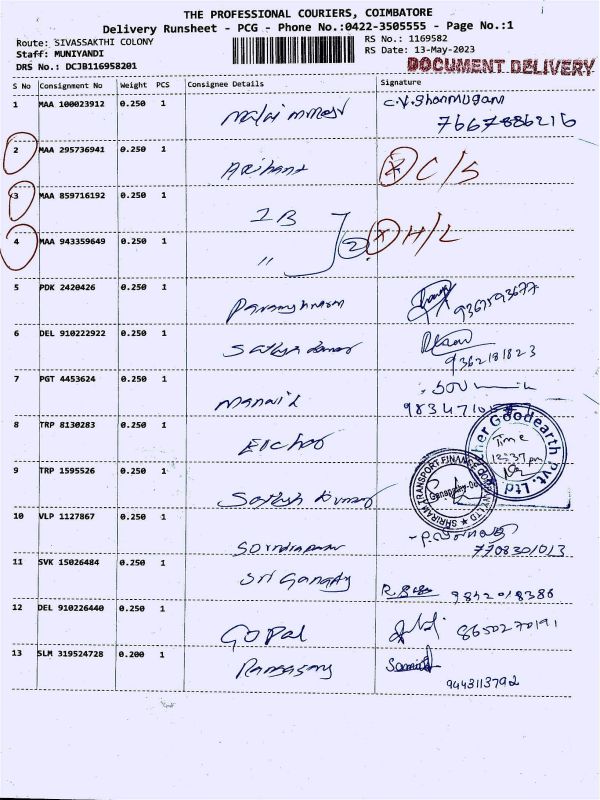 THE PROFESSIONAL COURIERS, COIMBATORE
Delivery Runsheet - PCG - Phone No.:0422-3505555 - Page No.:1
Route: SIVASSAKTHI COLONY RS No.: 1169582
Staff: MUNIYANDI RS Date: 13-May-2023
DRS No.: DCJB116958201 DOCUMENT DELIVERY
S No Consignment No Weight PCS Consignee Details Signature
1 MAA 100023912 0.250 1 C.V.Shanmugam
7667886216
2 MAA 295736941 0.250 1 Arihant C/S
3 MAA 859716192 0.250 1 IB
4 MAA 943359649 0.250 1 " 2 H/L
5 PDK 2420426 0.250 1
9367593677
6 DEL 910222922 0.250 1 Sathya Kumar
9362181823
7 PGT 4453624 0.250 1
8 TRP 8130283 0.250 1 Eicher
Goodearth Pvt. Ltd
Time
12:37 pm
9 TRP 1595526 0.250 1 Sathish Kumar
SHRIRAM TRANSPORT FINANCE COMPANY LTD
10 VLP 1127867 0.250 1
7708301013
11 SVK 15026484 0.250 1 Sri Ganapathy 9842018386
12 DEL 910226440 0.250 1 GOPAL 8650270191
13 SLM 319524728 0.200 1 Rangasamy
9443113792